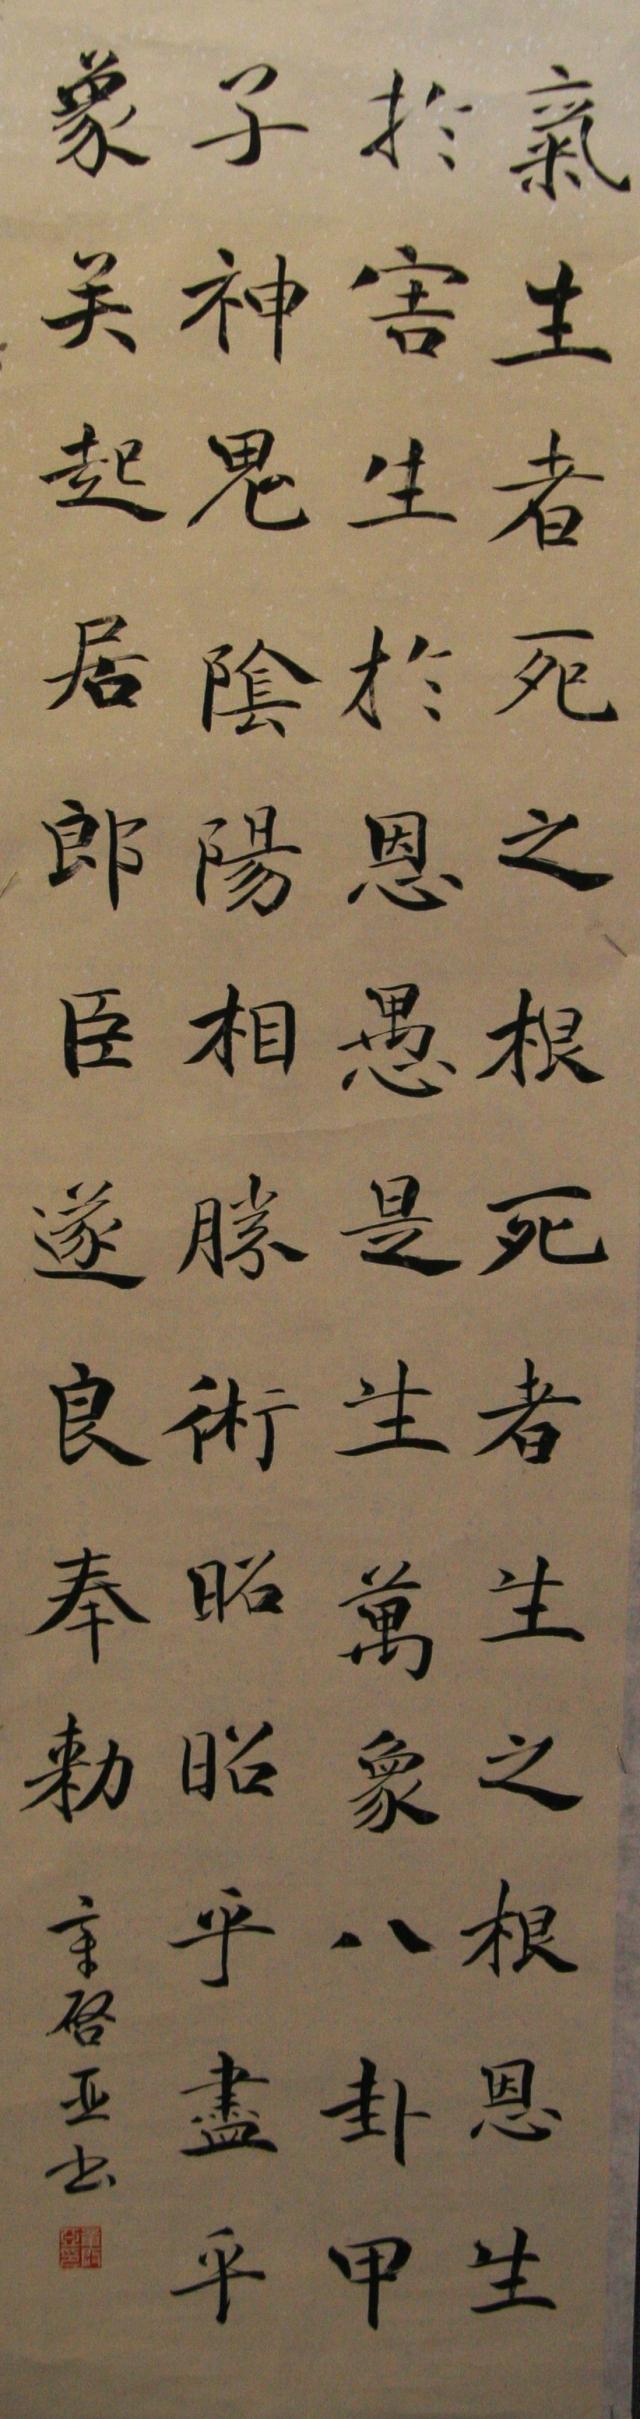 氣生者死之根死者生之根恩生
於害生於恩愚是生萬象八卦甲
子神鬼陰陽相勝術昭昭乎盡乎
象矣起居郎臣遂良奉勅
章啓亚书